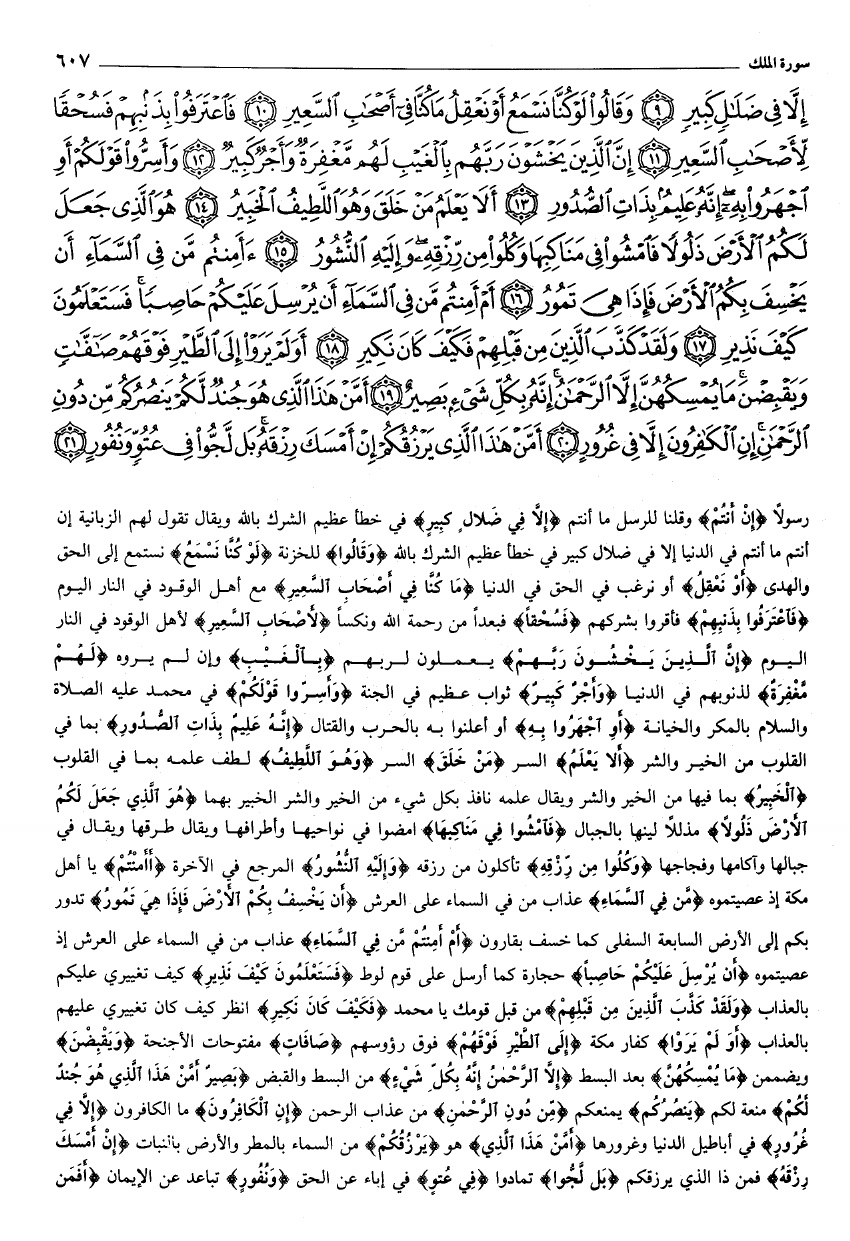 سورة الملك ٦٠٧
إِلَّا فِي ضَلَٰلٍ كَبِيرٍ ٩ وَقَالُوا۟ لَوْ كُنَّا نَسْمَعُ أَوْ نَعْقِلُ مَا كُنَّا فِىٓ أَصْحَٰبِ ٱلسَّعِيرِ ١٠ فَٱعْتَرَفُوا۟ بِذَنۢبِهِمْ فَسُحْقًا
لِّأَصْحَٰبِ ٱلسَّعِيرِ ١١ إِنَّ ٱلَّذِينَ يَخْشَوْنَ رَبَّهُم بِٱلْغَيْبِ لَهُم مَّغْفِرَةٌ وَأَجْرٌ كَبِيرٌ ١٢ وَأَسِرُّوا۟ قَوْلَكُمْ أَوِ
ٱجْهَرُوا۟ بِهِۦٓ إِنَّهُۥ عَلِيمٌۢ بِذَاتِ ٱلصُّدُورِ ١٣ أَلَا يَعْلَمُ مَنْ خَلَقَ وَهُوَ ٱللَّطِيفُ ٱلْخَبِيرُ ١٤ هُوَ ٱلَّذِى جَعَلَ
لَكُمُ ٱلْأَرْضَ ذَلُولًا فَٱمْشُوا۟ فِى مَنَاكِبِهَا وَكُلُوا۟ مِن رِّزْقِهِۦ وَإِلَيْهِ ٱلنُّشُورُ ١٥ ءَأَمِنتُم مَّن فِى ٱلسَّمَآءِ أَن
يَخْسِفَ بِكُمُ ٱلْأَرْضَ فَإِذَا هِىَ تَمُورُ ١٦ أَمْ أَمِنتُم مَّن فِى ٱلسَّمَآءِ أَن يُرْسِلَ عَلَيْكُمْ حَاصِبًا فَسَتَعْلَمُونَ
كَيْفَ نَذِيرِ ١٧ وَلَقَدْ كَذَّبَ ٱلَّذِينَ مِن قَبْلِهِمْ فَكَيْفَ كَانَ نَكِيرِ ١٨ أَوَلَمْ يَرَوْا۟ إِلَى ٱلطَّيْرِ فَوْقَهُمْ صَٰٓفَّٰتٍ
وَيَقْبِضْنَ مَا يُمْسِكُهُنَّ إِلَّا ٱلرَّحْمَٰنُ إِنَّهُۥ بِكُلِّ شَىْءٍۭ بَصِيرٌ ١٩ أَمَّنْ هَٰذَا ٱلَّذِى هُوَ جُندٌ لَّكُمْ يَنصُرُكُم مِّن دُونِ
ٱلرَّحْمَٰنِ إِنِ ٱلْكَٰفِرُونَ إِلَّا فِى غُرُورٍ ٢٠ أَمَّنْ هَٰذَا ٱلَّذِى يَرْزُقُكُمْ إِنْ أَمْسَكَ رِزْقَهُۥ بَل لَّجُّوا۟ فِى عُتُوٍّ وَنُفُورٍ ٢١
رسولاً ﴿إِنْ أَنْتُمْ﴾ وقلنا للرسل ما أنتم ﴿إِلَّا فِي ضَلَالٍ كَبِيرٍ﴾ في خطأ عظيم الشرك بالله ويقال تقول لهم الزبانية إن
أنتم ما أنتم في الدنيا إلا في ضلال كبير في خطأ عظيم الشرك بالله ﴿وَقَالُوا﴾ للخزنة ﴿لَوْ كُنَّا نَسْمَعُ﴾ نستمع إلى الحق
والهدى ﴿أَوْ نَعْقِلُ﴾ أو نرغب في الحق في الدنيا ﴿مَا كُنَّا فِي أَصْحَابِ ٱلسَّعِيرِ﴾ مع أهل الوقود في النار اليوم
﴿فَٱعْتَرَفُوا بِذَنبِهِمْ﴾ فأقروا بشركهم ﴿فَسُحْقاً﴾ فبعداً من رحمة الله ونكساً ﴿لأَصْحَابِ ٱلسَّعِيرِ﴾ لأهل الوقود في النار
اليوم ﴿إِنَّ ٱلَّذِينَ يَخْشَوْنَ رَبَّهُمْ﴾ يعملون لربهم ﴿بِٱلْغَيْبِ﴾ وإن لم يروه ﴿لَهُمْ
مَّغْفِرَةٌ﴾ لذنوبهم في الدنيا ﴿وَأَجْرٌ كَبِيرٌ﴾ ثواب عظيم في الجنة ﴿وَأَسِرُّوا قَوْلَكُمْ﴾ في محمد عليه الصلاة
والسلام بالمكر والخيانة ﴿أَوِ ٱجْهَرُوا بِهِ﴾ أو أعلنوا به بالحرب والقتال ﴿إِنَّهُ عَلِيمٌ بِذَاتِ ٱلصُّدُورِ﴾ بما في
القلوب من الخير والشر ﴿أَلَا يَعْلَمُ﴾ السر ﴿مَنْ خَلَقَ﴾ السر ﴿وَهُوَ ٱللَّطِيفُ﴾ لطف علمه بما في القلوب
﴿ٱلْخَبِيرُ﴾ بما فيها من الخير والشر ويقال علمه نافذ بكل شيء من الخير والشر الخبير بهما ﴿هُوَ ٱلَّذِي جَعَلَ لَكُمُ
ٱلأَرْضَ ذَلُولاً﴾ مذللاً لينها بالجبال ﴿فَٱمْشُوا فِي مَنَاكِبِهَا﴾ امضوا في نواحيها وأطرافها ويقال طرقها ويقال في
جبالها وآكامها وفجاجها ﴿وَكُلُوا مِن رِّزْقِهِ﴾ تأكلون من رزقه ﴿وَإِلَيْهِ ٱلنُّشُورُ﴾ المرجع في الآخرة ﴿أَأَمِنْتُمْ﴾ يا أهل
مكة إذ عصيتموه ﴿مَّن فِي ٱلسَّمَاءِ﴾ عذاب من في السماء على العرش ﴿أَن يَخْسِفُ بِكُمُ ٱلأَرْضَ فَإِذَا هِيَ تَمُورُ﴾ تدور
بكم إلى الأرض السابعة السفلى كما خسف بقارون ﴿أَمْ أَمِنتُمْ مَّن فِي ٱلسَّمَاءِ﴾ عذاب من في السماء على العرش إذ
عصيتموه ﴿أَن يُرْسِلَ عَلَيْكُمْ حَاصِباً﴾ حجارة كما أرسل على قوم لوط ﴿فَسَتَعْلَمُونَ كَيْفَ نَذِيرِ﴾ كيف تغييري عليكم
بالعذاب ﴿وَلَقَدْ كَذَّبَ ٱلَّذِينَ مِن قَبْلِهِمْ﴾ من قبل قومك يا محمد ﴿فَكَيْفَ كَانَ نَكِيرِ﴾ انظر كيف كان تغييري عليهم
بالعذاب ﴿أَوَ لَمْ يَرَوْا﴾ كفار مكة ﴿إِلَى ٱلطَّيْرِ فَوْقَهُمْ﴾ فوق رؤوسهم ﴿صَافَاتٍ﴾ مفتوحات الأجنحة ﴿وَيَقْبِضْنَ﴾
ويضممن ﴿مَا يُمْسِكُهُنَّ﴾ بعد البسط ﴿إِلَّا ٱلرَّحْمٰنُ إِنَّهُ بِكُلِّ شَيْءٍ﴾ من البسط والقبض ﴿بَصِيرٌ أَمَّنْ هَذَا ٱلَّذِي هُوَ جُندٌ
لَكُمْ﴾ منعة لكم ﴿يَنصُرُكُم﴾ يمنعكم ﴿مِّن دُونِ ٱلرَّحْمٰنِ﴾ من عذاب الرحمن ﴿إِنِ ٱلْكَافِرُونَ﴾ ما الكافرون ﴿إِلَّا فِي
غُرُورٍ﴾ في أباطيل الدنيا وغرورها ﴿أَمَّنْ هَذَا ٱلَّذِي﴾ هو ﴿يَرْزُقُكُمْ﴾ من السماء بالمطر والأرض بالنبات ﴿إِنْ أَمْسَكَ
رِزْقَهُ﴾ فمن ذا الذي يرزقكم ﴿بَل لَّجُّوا﴾ تمادوا ﴿فِي عُتوٍ﴾ في إباء عن الحق ﴿وَنُفُورٍ﴾ تباعد عن الإيمان ﴿أَفَمَن